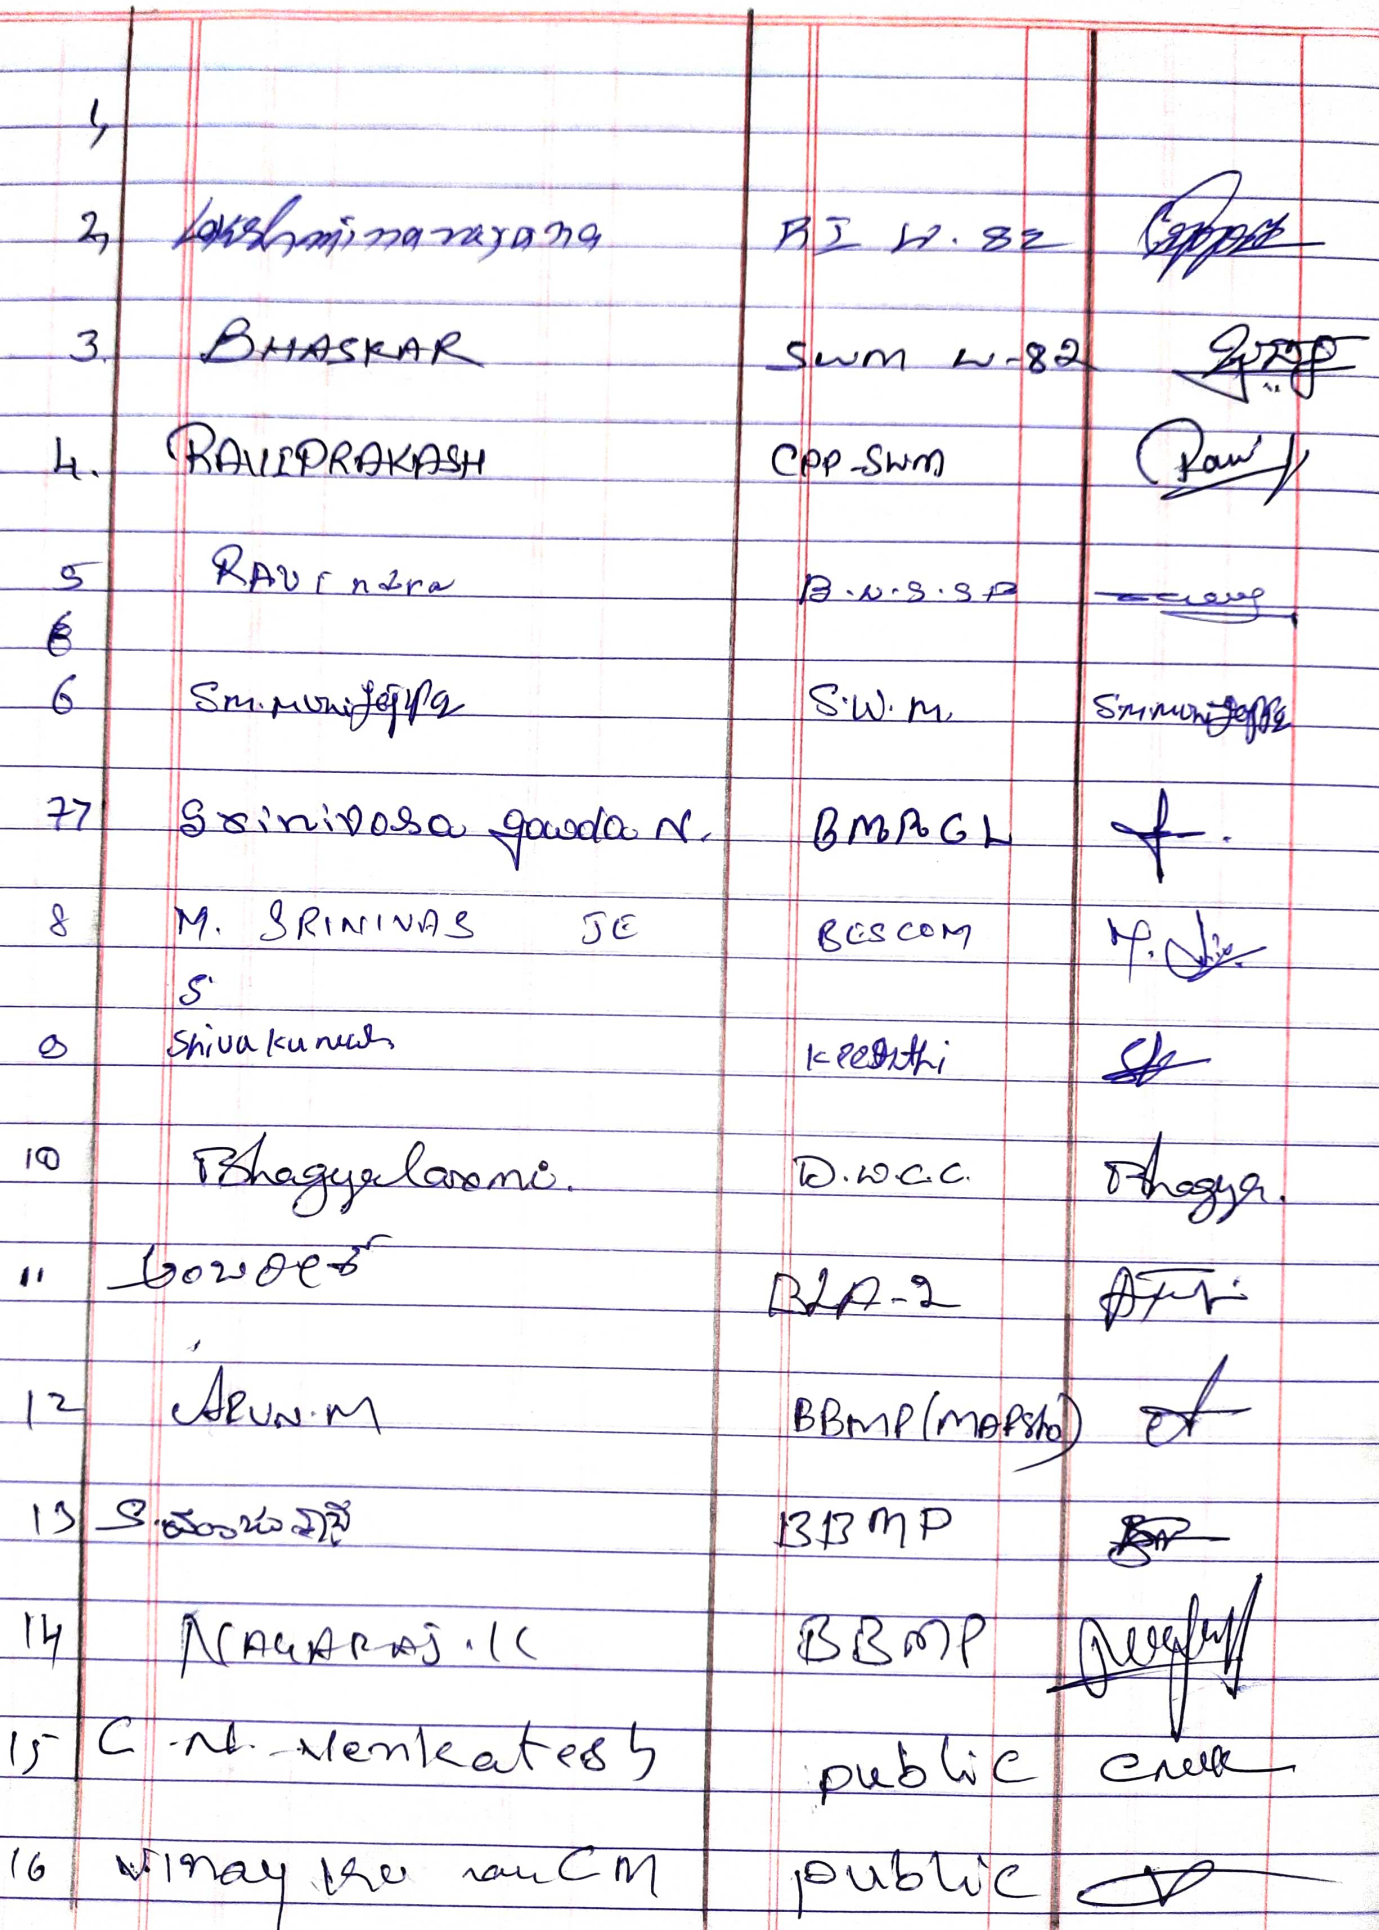 1,
2, Lakshminarayana RI W. 82
3. BHASKAR SWM W-82
4. RAVIPRAKASH CPP-SWM Ravi
5 RAVINdra B.W.S.S.B
6
6 Sm. Munijappa S.W.M. Sm Munijappa
77 Srinivasa gowda N. BMRCL
8 M. SRINIVAS JE BESCOM
S
9 Shivakumar Keerthi
10 Bhagyalaxmi. D.W.C.C. Bhagya.
11 ಅಂಬರೀಶ್ BLA-2
12 ARUN.M BBMP (MARSHAL)
13 BBMP
14 NAGARAJ.K BBMP
15 C.N. Venkatesh public
16 Vinay Kumar CM public